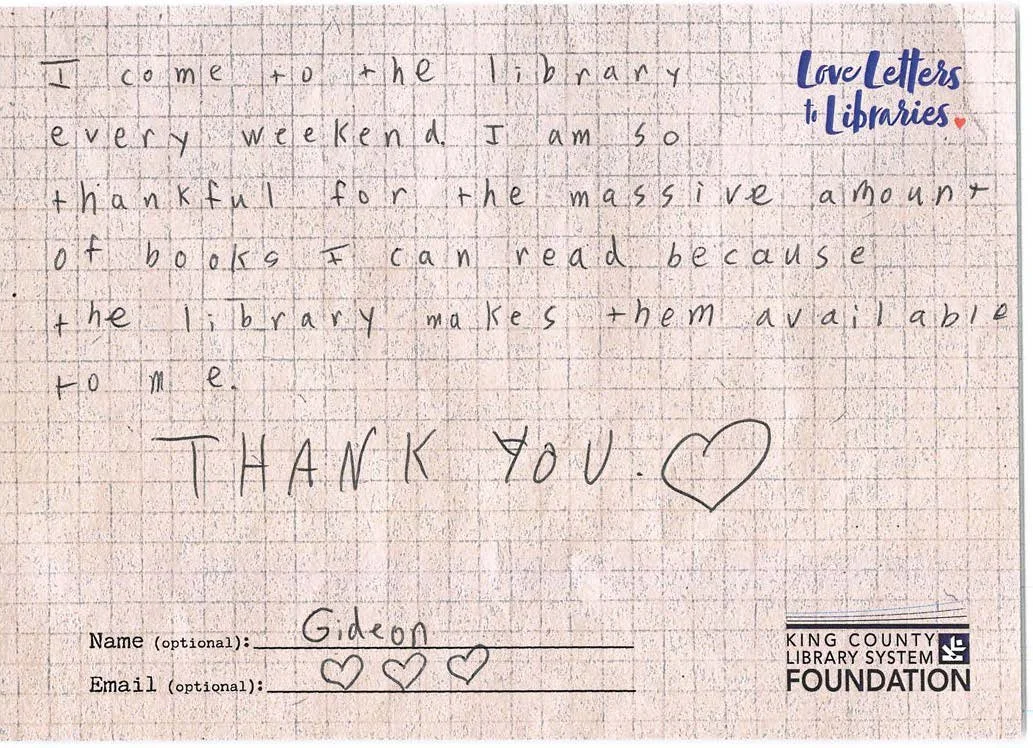 I come to the library
every weekend. I am so
thankful for the massive amount
of books I can read because
the library makes them available
to me.
THANK YOU.
Love Letters
to Libraries
Name (optional): Gideon
Email (optional):
KING COUNTY
LIBRARY SYSTEM
FOUNDATION